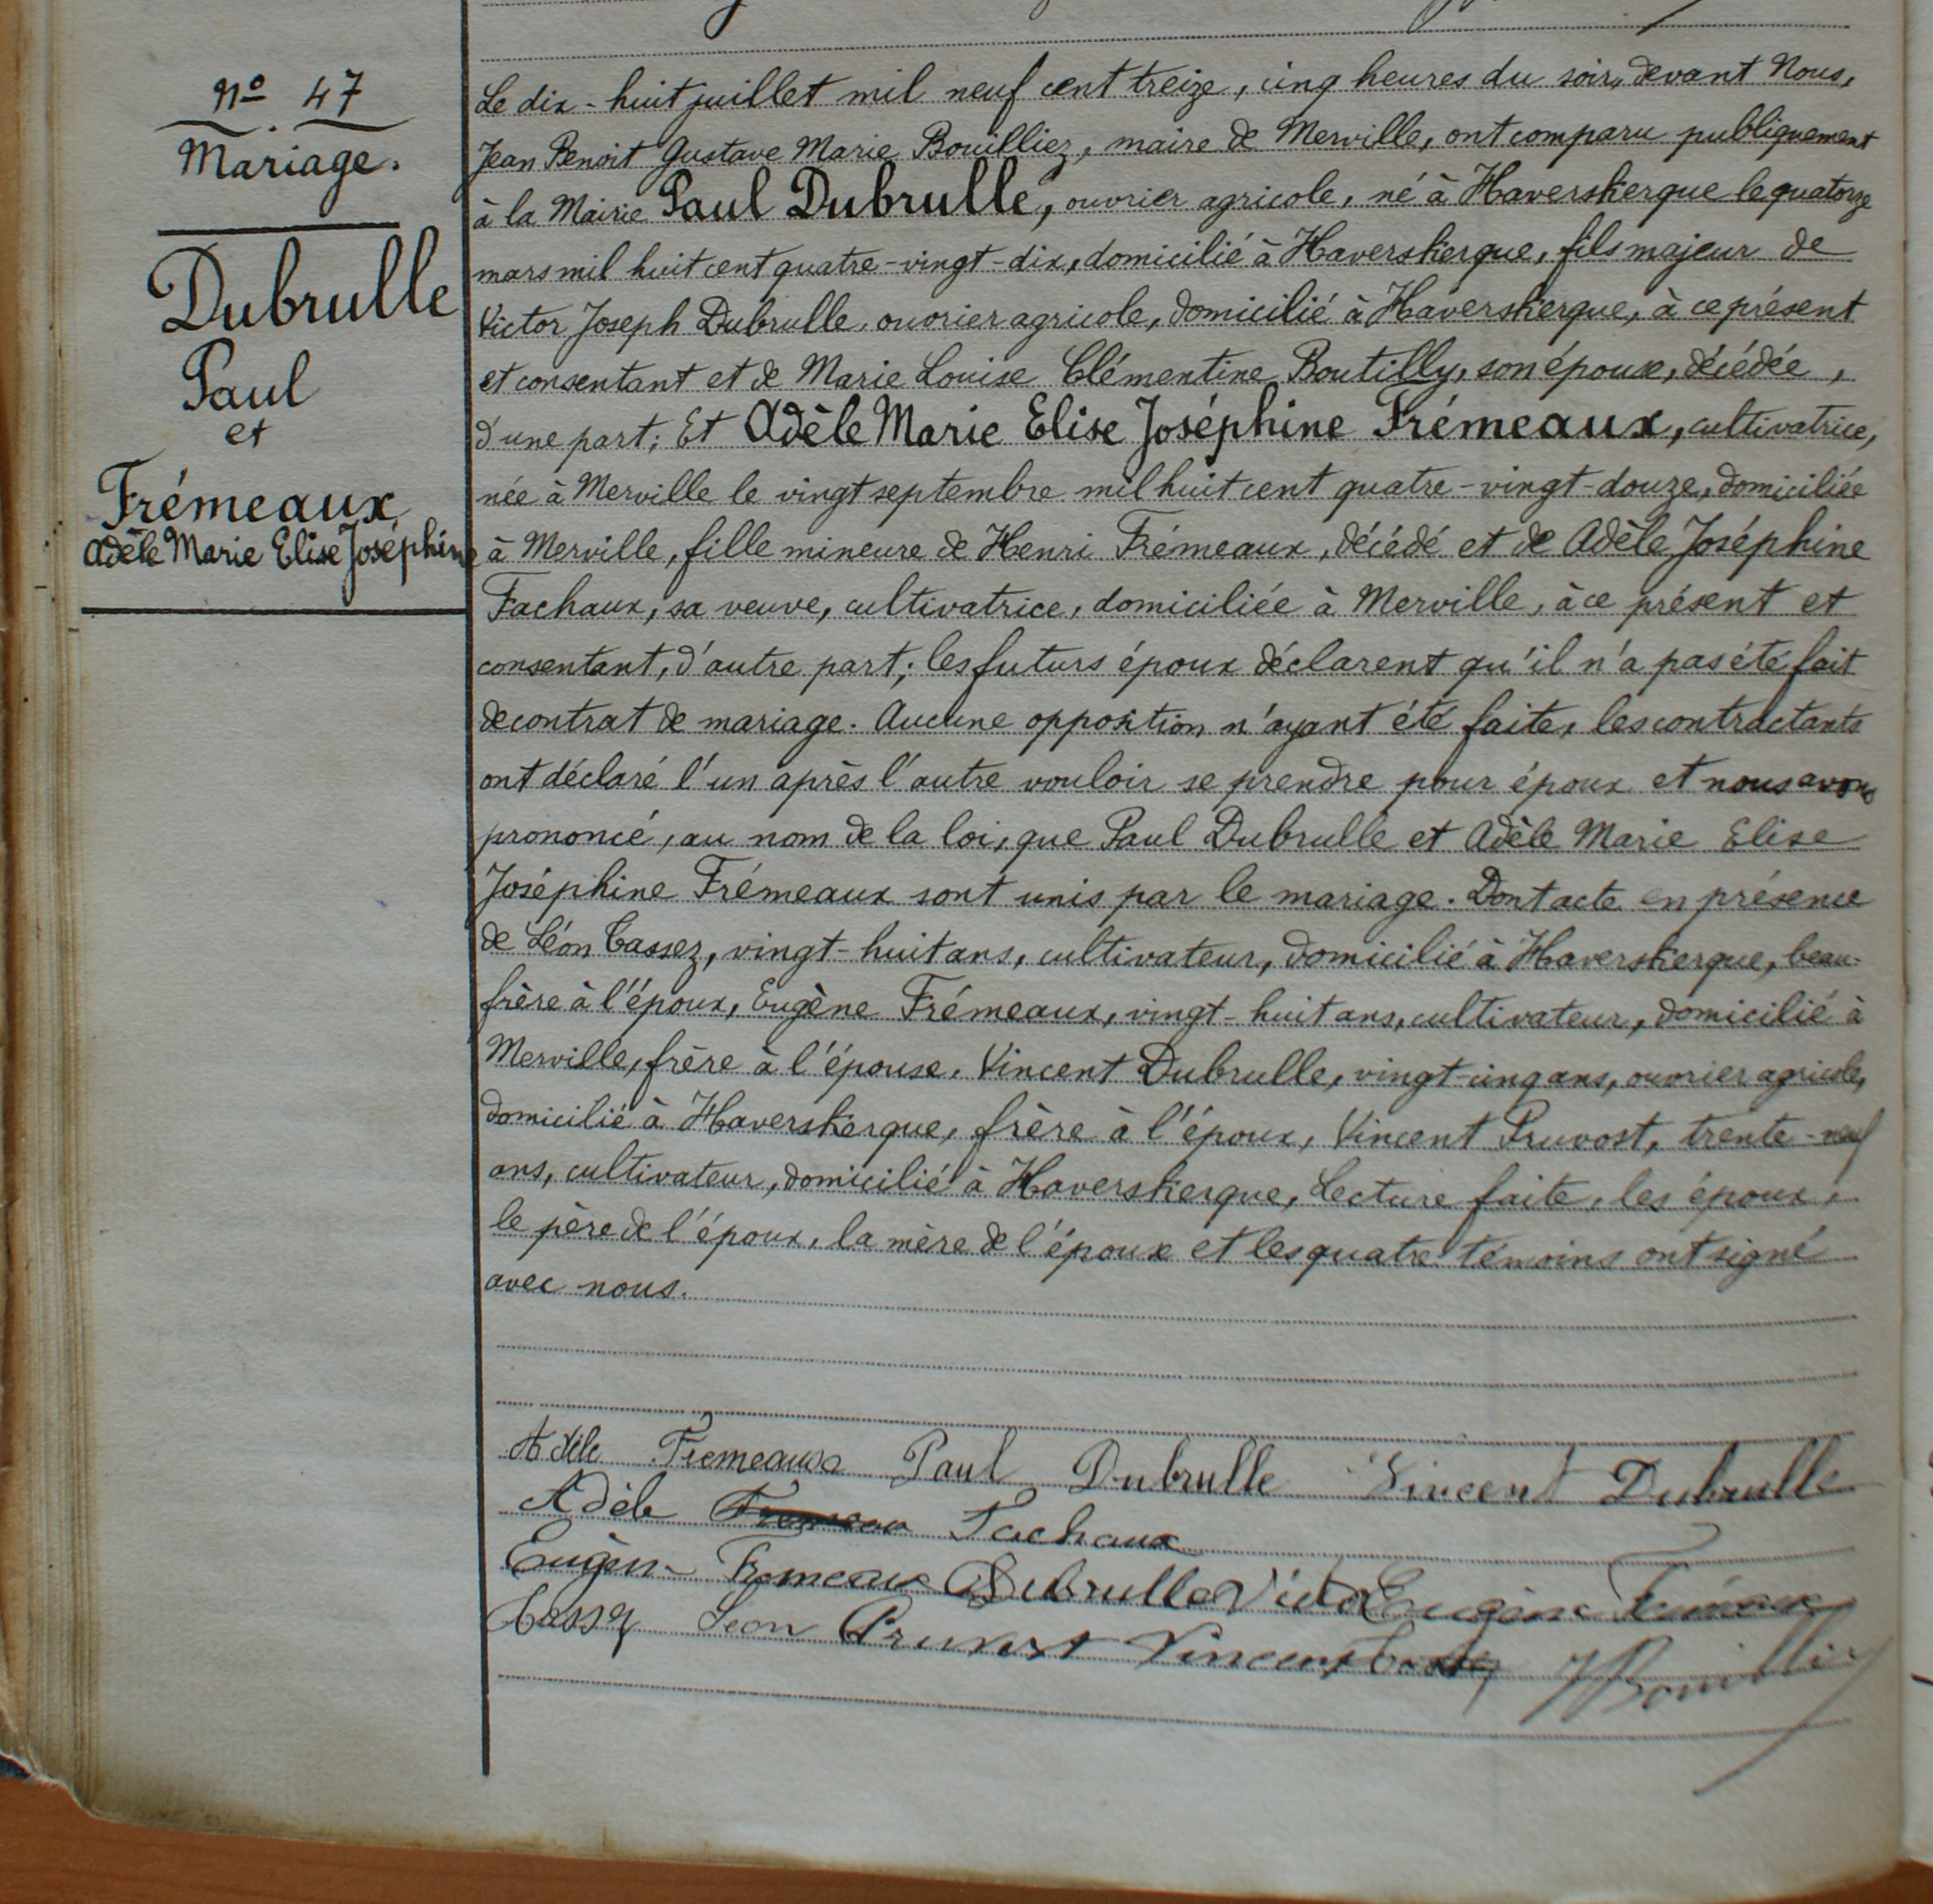 Nº 47
Mariage.
Dubrulle
Paul
et
Frémeaux
Adèle Marie Elise Joséphine
Le dix-huit juillet mil neuf cent treize, cinq heures du soir, devant Nous,
Jean Benoit Gustave Marie Bouilliez, maire de Merville, ont comparu publiquement
à la Mairie Paul Dubrulle, ouvrier agricole, né à Haverskerque le quatorze
mars mil huit cent quatre-vingt-dix, domicilié à Haverskerque, fils majeur de
Victor Joseph Dubrulle, ouvrier agricole, domicilié à Haverskerque, à ce présent
et consentant et de Marie Louise Clémentine Boutilly, son épouse, décédée,
d'une part; Et Adèle Marie Elise Joséphine Frémeaux, cultivatrice,
née à Merville le vingt septembre mil huit cent quatre-vingt-douze, domiciliée
à Merville, fille mineure de Henri Frémeaux, décédé et de Adèle Joséphine
Fachaux, sa veuve, cultivatrice, domiciliée à Merville, à ce présent et
consentant, d'autre part; les futurs époux déclarent qu'il n'a pas été fait
de contrat de mariage. Aucune opposition n'ayant été faite, les contractants
ont déclaré l'un après l'autre vouloir se prendre pour époux et nous avons
prononcé, au nom de la loi, que Paul Dubrulle et Adèle Marie Elise
Joséphine Frémeaux sont unis par le mariage. Dont acte en présence
de Léon Cassez, vingt-huit ans, cultivateur, domicilié à Haverskerque, beau-
frère à l'époux, Eugène Frémeaux, vingt-huit ans, cultivateur, domicilié à
Merville, frère à l'épouse, Vincent Dubrulle, vingt-cinq ans, ouvrier agricole,
domicilié à Haverskerque, frère à l'époux, Vincent Pruvost, trente-neuf
ans, cultivateur, domicilié à Haverskerque, Lecture faite, les époux,
le père de l'époux, la mère de l'épouse et les quatre témoins ont signé
avec nous.
Adèle Fremeaux Paul Dubrulle Vincent Dubrulle
Adèle Fachaux
Eugène Fremeaux Dubrulle Victor Eugène Frémeaux
Cassez Leon Pruvost Vincent JBouilliez